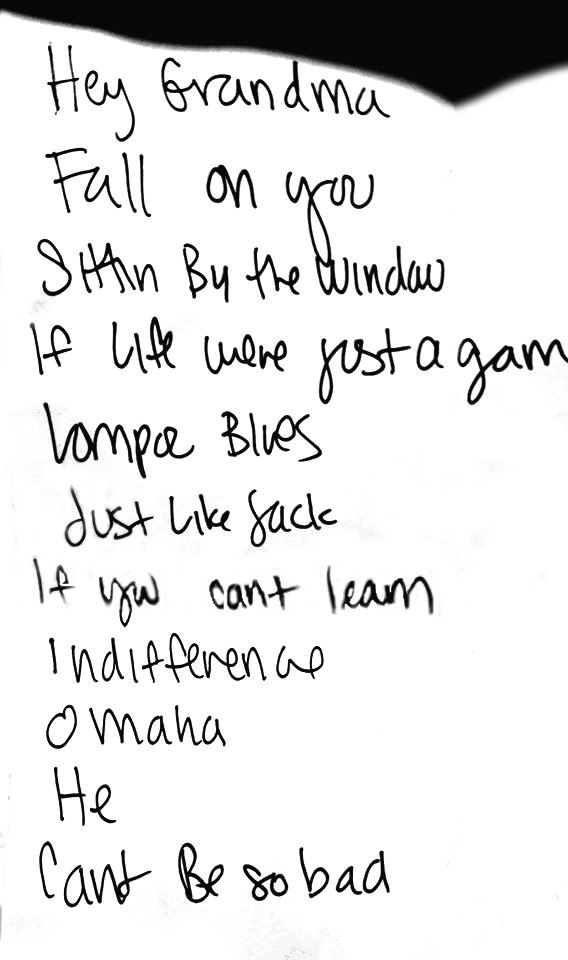 Hey Grandma
Fall on you
Sittin By the Window
If Life were just a gam
Lompoc Blues
Just Like Jack
If you cant learn
Indifference
Omaha
He
Cant Be so bad